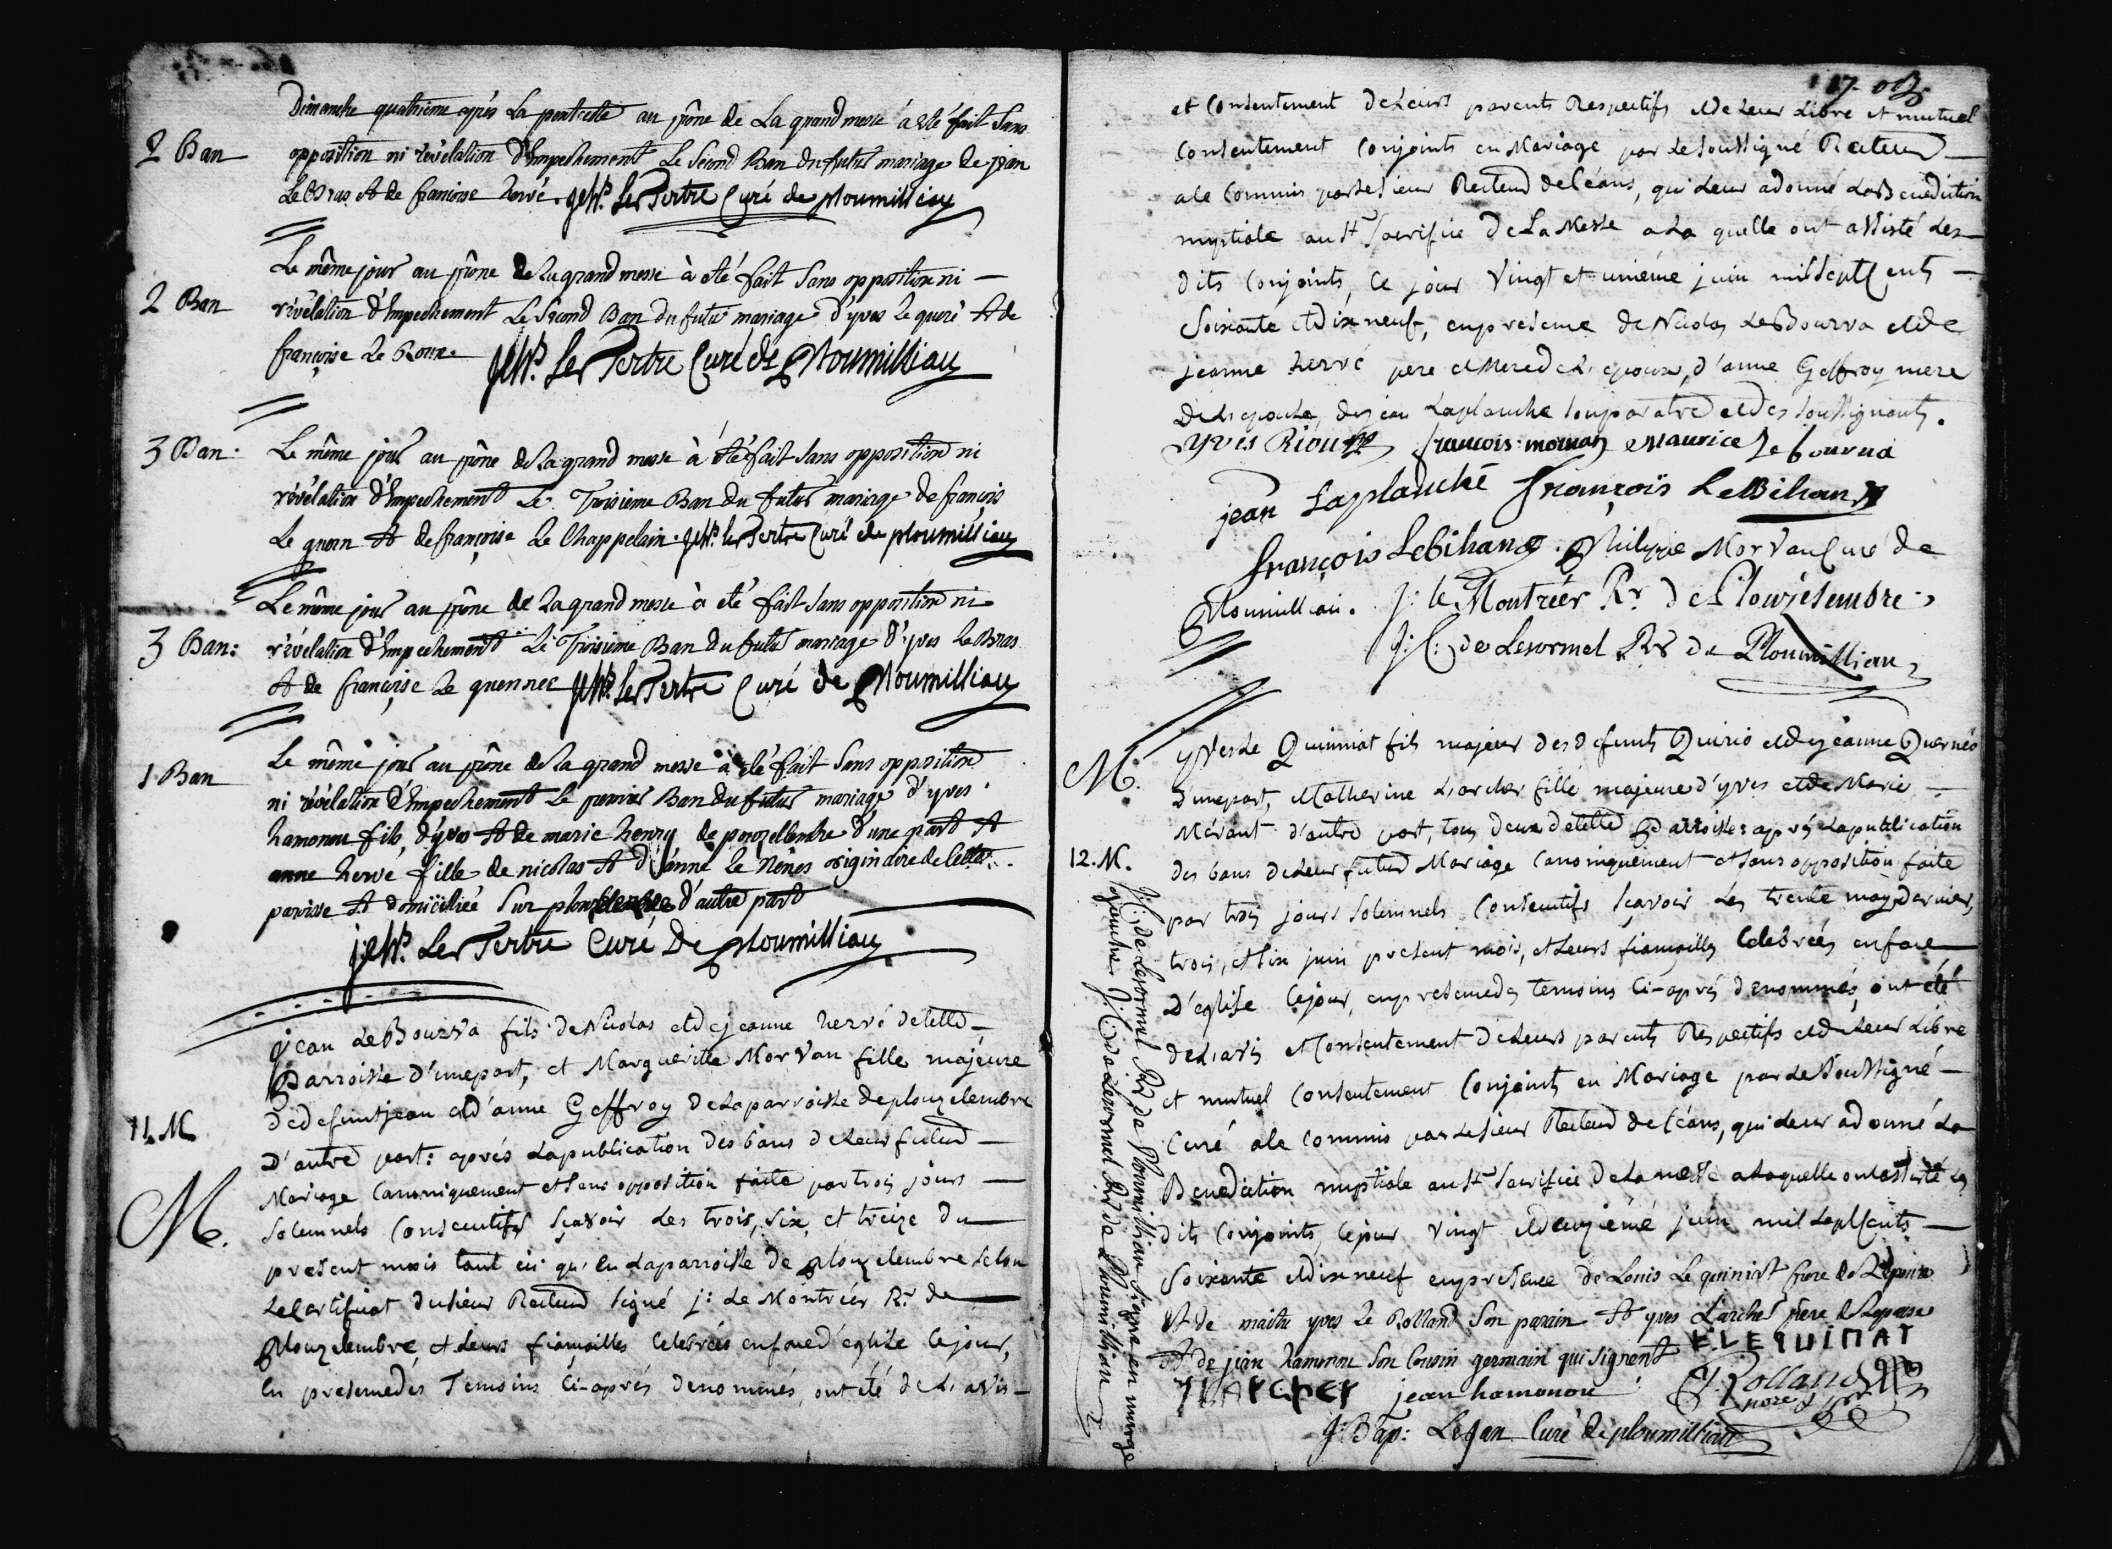 Dimanche quatrième après La pentecoste au prône de La grand messe à été fait Sans
2 Ban
opposition ni révélation d'Empechement Le Second Ban du futur mariage de jean
Le Bras & de françoise hervé. jph. Le Tertre Curé de ploumilliau
Le même jour au prône de La grand messe à été fait Sans opposition ni
2 Ban
révélation d'Empechement Le Second Ban du futur mariage d'yves Le queré & de
françoise Le Roux. jph. Le Tertre Curé de Ploumilliau
3 Ban:
Le même jour au prône de La grand messe à été fait Sans opposition ni
révélation d'Empechement Le Troisieme Ban du futur mariage de françois
Le guern & de françoise Le Chappelain. jph. Le Tertre Curé de ploumilliau
Le même jour au prône de La grand messe à été fait Sans opposition ni
3 Ban:
révélation d'Empechement Le Troisieme Ban du futur mariage d'yves Le Bras
& de françoise Le guennec jph. Le Tertre Curé de Ploumilliau
1 Ban
Le même jour au prône de La grand messe à été fait Sans opposition
ni révélation d'Empechement Le premier Ban du futur mariage d'yves
hamonou fils, d'yves & de marie henry de d'une part &
anne herve fille de nicolas & d'anne Le Nénes originaire de Cette
parisse & domiciliée Sur d'autre part
jph. Le Tertre Curé De ploumilliau
jean Le Bourva fils de Nicolas et de jeanne hervé de cette
Parroisse d'une part, et Marguerite Morvan fille majeure
de defunt jean et d'anne Geffroy de La parroisse de plouzelembre
11. M
D'autre part: après La publication des bans de Leur futur
Mariage Canoniquement et Sans opposition faite par trois jours
M.
Solemnels Consecutifs Sçavoir Les trois, Six, et treize du
present mois tant ici qu'en La parroisse de plouzelembre Selon
Le Certificat du Sieur Recteur Signé j: Le Montréer Rr. de
Plouzelembre, et Leurs fiançailles Celebrées en face d'eglise Ce jour,
En presence des Temoins Ci-après denommés, ont été de L'avis
et Consentement de Leurs parents Respectifs et de Leur Libre et mutuel
Consentement Conjoints en Mariage par Le Soussigné Recteur
a Ce Commis par Le Sieur Recteur de Céans, qui Leur a donné La Benediction
nuptiale au St. Sacrifice De La Messe a La quelle ont assisté Les
dits Conjoints, Ce jour Vingt et unième juin mil Sept Cents
Soixante et Dix neuf, en presence de Nicolas Le Bourva et de
jeanne hervé pere et Mere de L'epoux, d'anne Geffroy mere
De L'epouse, de jean Laplanche Son paratre et des Soussignants.
yves Riou françois morvan Maurice Le bourva
jean Laplanche François Le Bihan
François Lebihan. Philippe Morvan Curé de
Ploumilliau. J: le Montréer Rr. de Plouzélembre
J: C: de Lesormel Rr de Ploumilliau
M.
yves Le Quinniat fils majeur des defunts Quirio et de jeanne Quernéo
D'une part, et Catherine L'archer fille majeure d'yves et de Marie
Mérant d'autre part, tous deux de cette Parroisse: après La publication
12. M.
des bans de Leur futur Mariage Canoniquement et Sans opposition faite
par trois jours Solemnels Consecutifs Sçavoir Les trente may dernier,
trois, et Six juin present mois, et Leurs fiançailles Celebrées en face
D'eglise Ce jour, en presence des Temoins Ci-après denommés, ont été
de L'avis et Consentement de Leurs parents Respectifs et de Leur Libre
et mutuel Consentement Conjoints en Mariage par Le Soussigné
Curé a Ce Commis par Le Sieur Recteur de Céans, qui Leur a donné La
Benediction nuptiale au St. Sacrifice de La messe a Laquelle ont assisté Les
dits Conjoints, Ce jour Vingt et deuxiémé juin mil Sept Cents
Soixante et dix neuf en presence de Louis Le quiniat frere de L'epoux
& de maitre yves Le Rolland Son parain & yves L'archer frere de L'epouse
& de jean hamonou Son Cousin germain qui Signent L LE QUINIAT
Y LARCHER jean hamonou Y. Rolland
J: Bap: Le Jan Curé de ploumilliau
J: C: de Lesormel Rr de Ploumilliau Signe en marge
gauche J: C: de Lesormel Rr de Ploumilliau